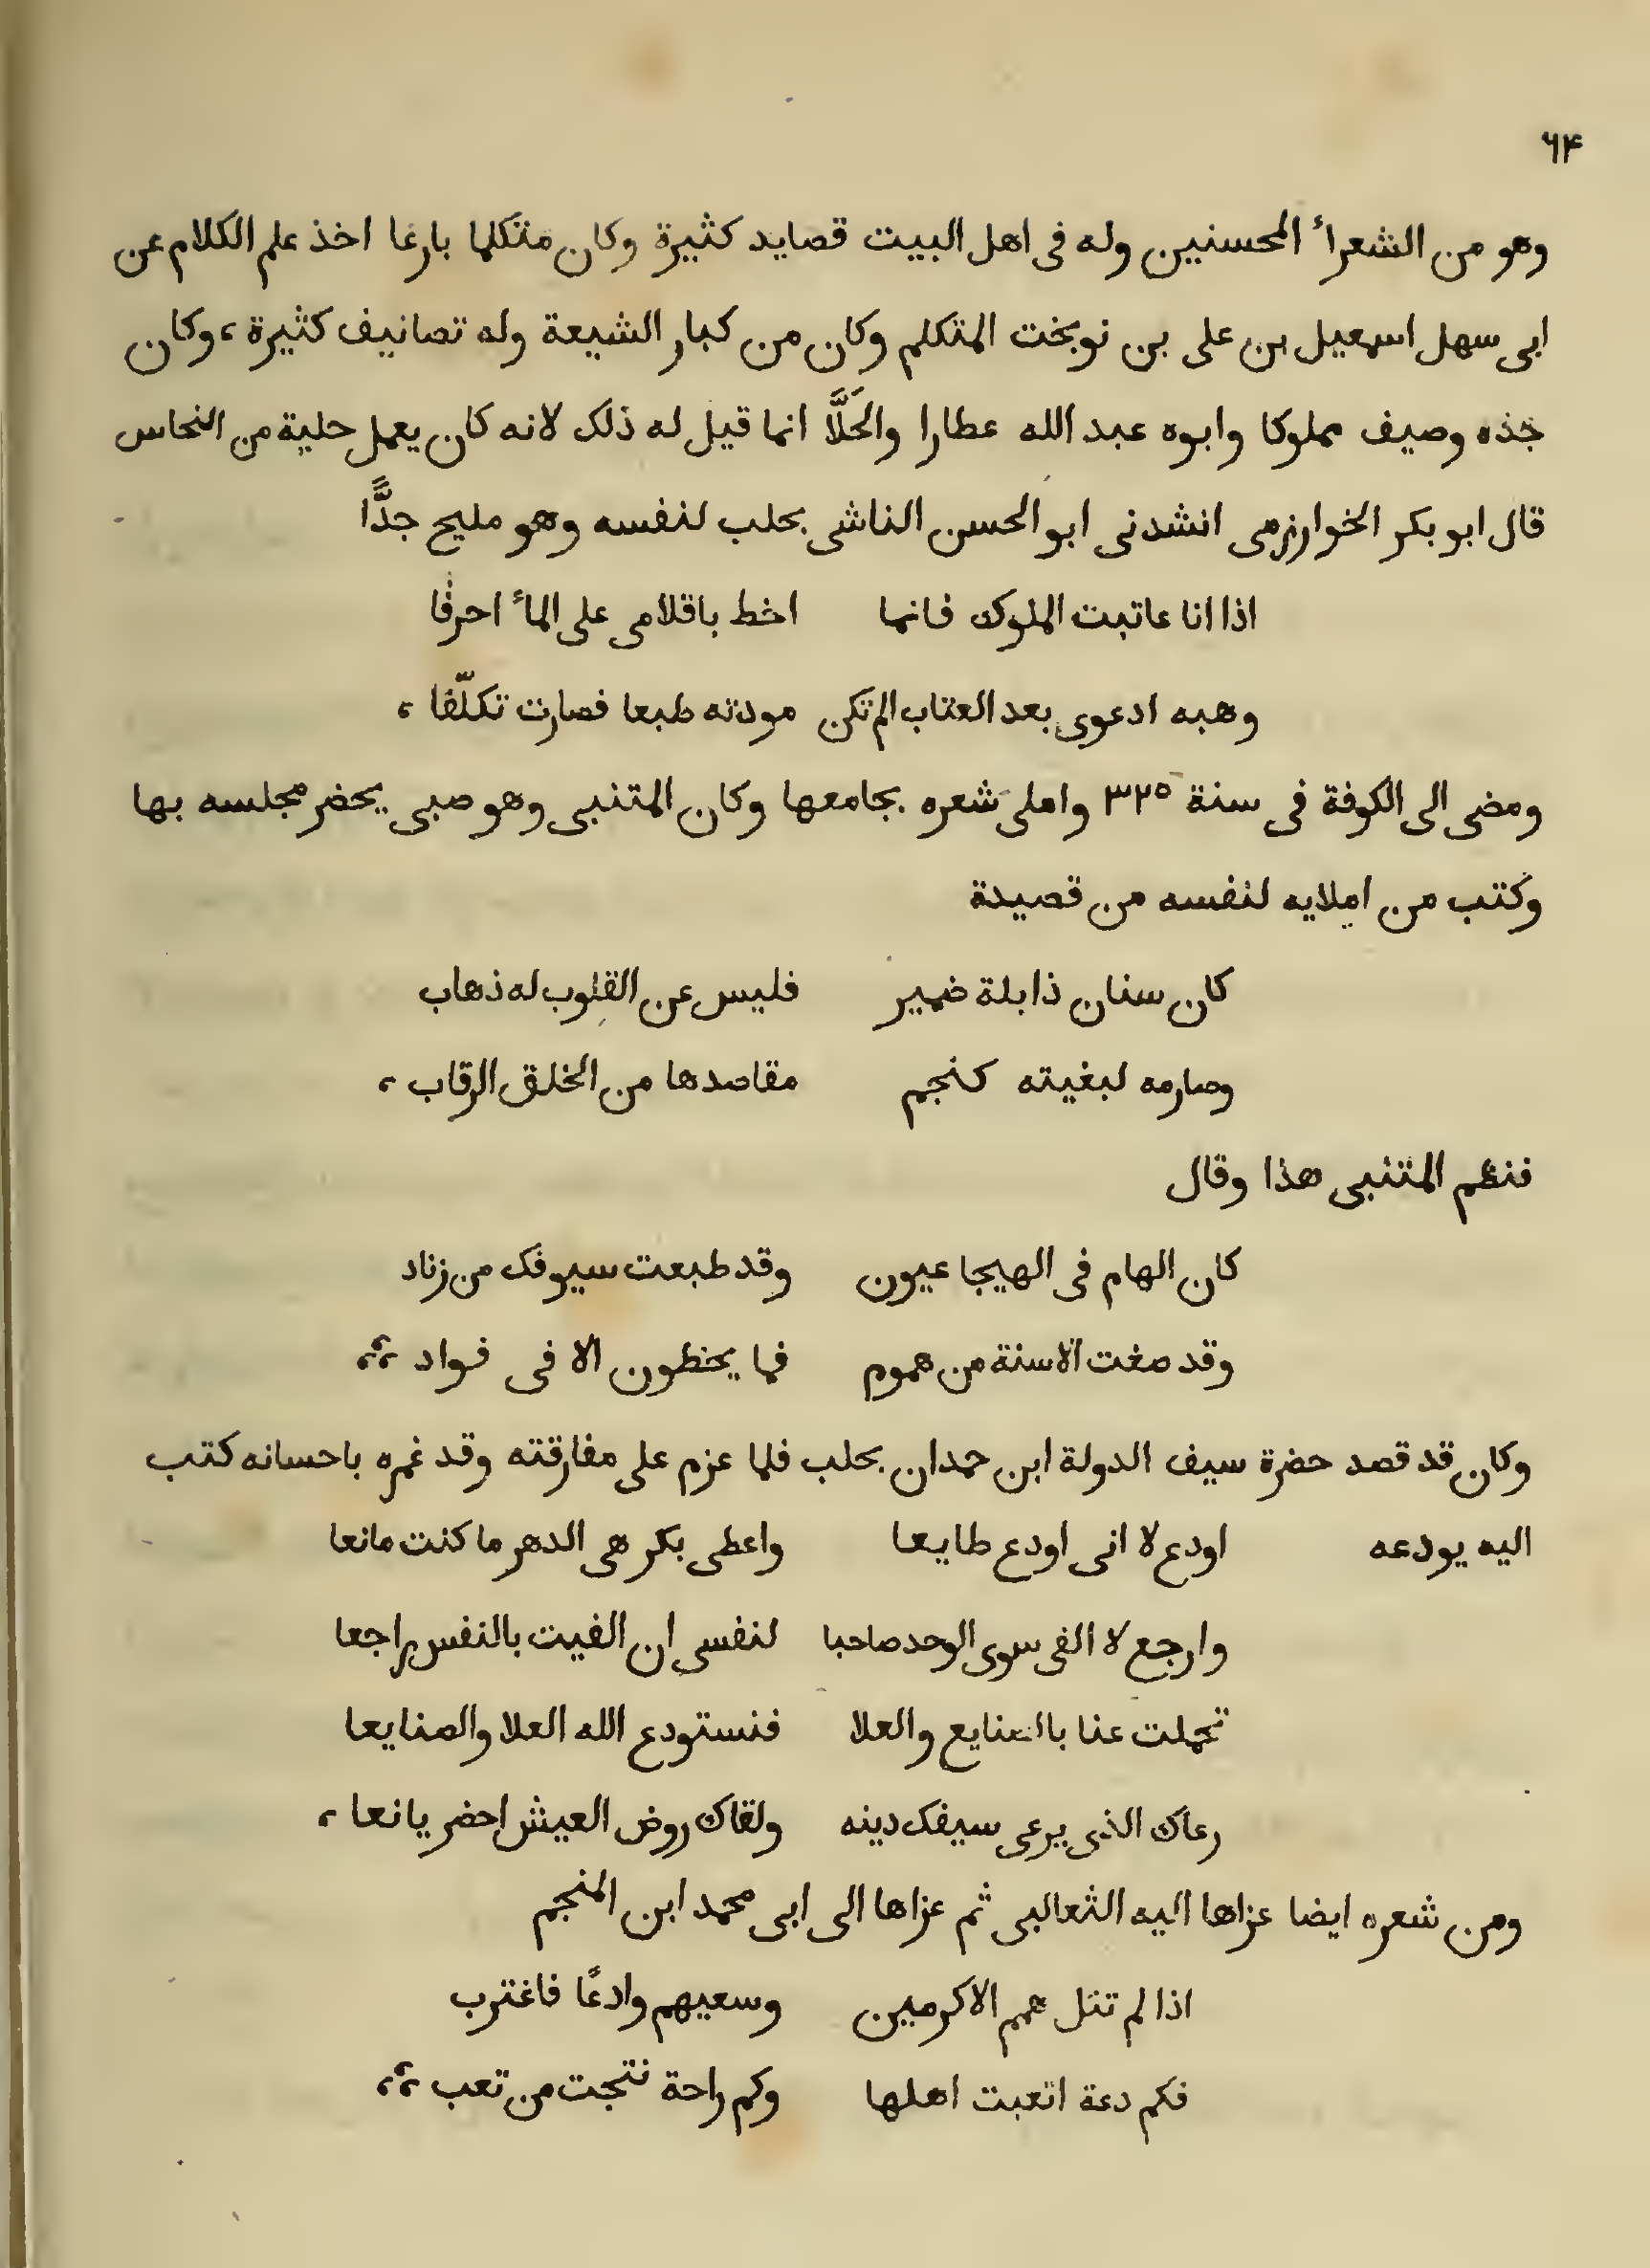 ٦٤
وهو من الشعرأ المحسنين وله فى اهل البيت قصايد كثيرة وكان متكلما بارعا اخذ علم الكلام عن
ابى سهل اسمعيل بن على بن نوبخت المتكلم وكان من كبار الشيعة وله تصانيف كثيرة ، وكان
جذه وصيف مملوكا وابوه عبد الله عطارا والحَلَّا انما قيل له ذلك لانه كان يعمل حلية من النحاس
قال ابو بكر الخوارزمى انشدنى ابو الحسن الناشى بحلب لنفسه وهو مليح جدًّا
اذا انا عاتبت الملوك فانما اخط باقلامى على المأ احرفا
وهبه ادعوى بعد العتاب الم تكن مودته طبعا فصارت تكلّفا ،
ومضى الى الكوفة فى سنة ٣٢٥ واملى شعره بجامعها وكان المتنبى وهو صبى يحضر مجلسه بها
وكتب من املايه لنفسه من قصيدة
كان سنان ذابلة ضمير فليس عن القلوب له ذهاب
وصارمه لبغيته كنجم مقاصدها من الخلق الرقاب ،
فنظم المتنبى هذا وقال
كان الهام فى الهيجا عيون وقد طبعت سيوفك من زناد
وقد صغت الاسنة من هموم فما يخظون الا فى فواد ؛،
وكان قد قصد حضرة سيف الدولة ابن حمدان بحلب فلما عزم على مفارقته وقد غمره باحسانه كتب
اليه يودعه اودع لا انى اودع طايعا واعطى بكر هى الدهر ما كنت مانعا
وارجع لا الفى سوى الوحد صاحبا لنفسى ان الفيت بالنفس راجعا
تحملت عنا بالصنايع والعلا فنستودع الله العلا والصنايعا
رعاك الذى يرعى سيفك دينه ولقاك روض العيش احضر يانعا ،
ومن شعره ايضا عزاها اليه الثعالبى ثم عزاها الى ابى محمد ابن المنجم
اذا لم تنل همم الاكرمين وسعيهم وادعًا فاغترب
فكم دعة اتعبت اهلها وكم راحة نتجت من تعب ؛،